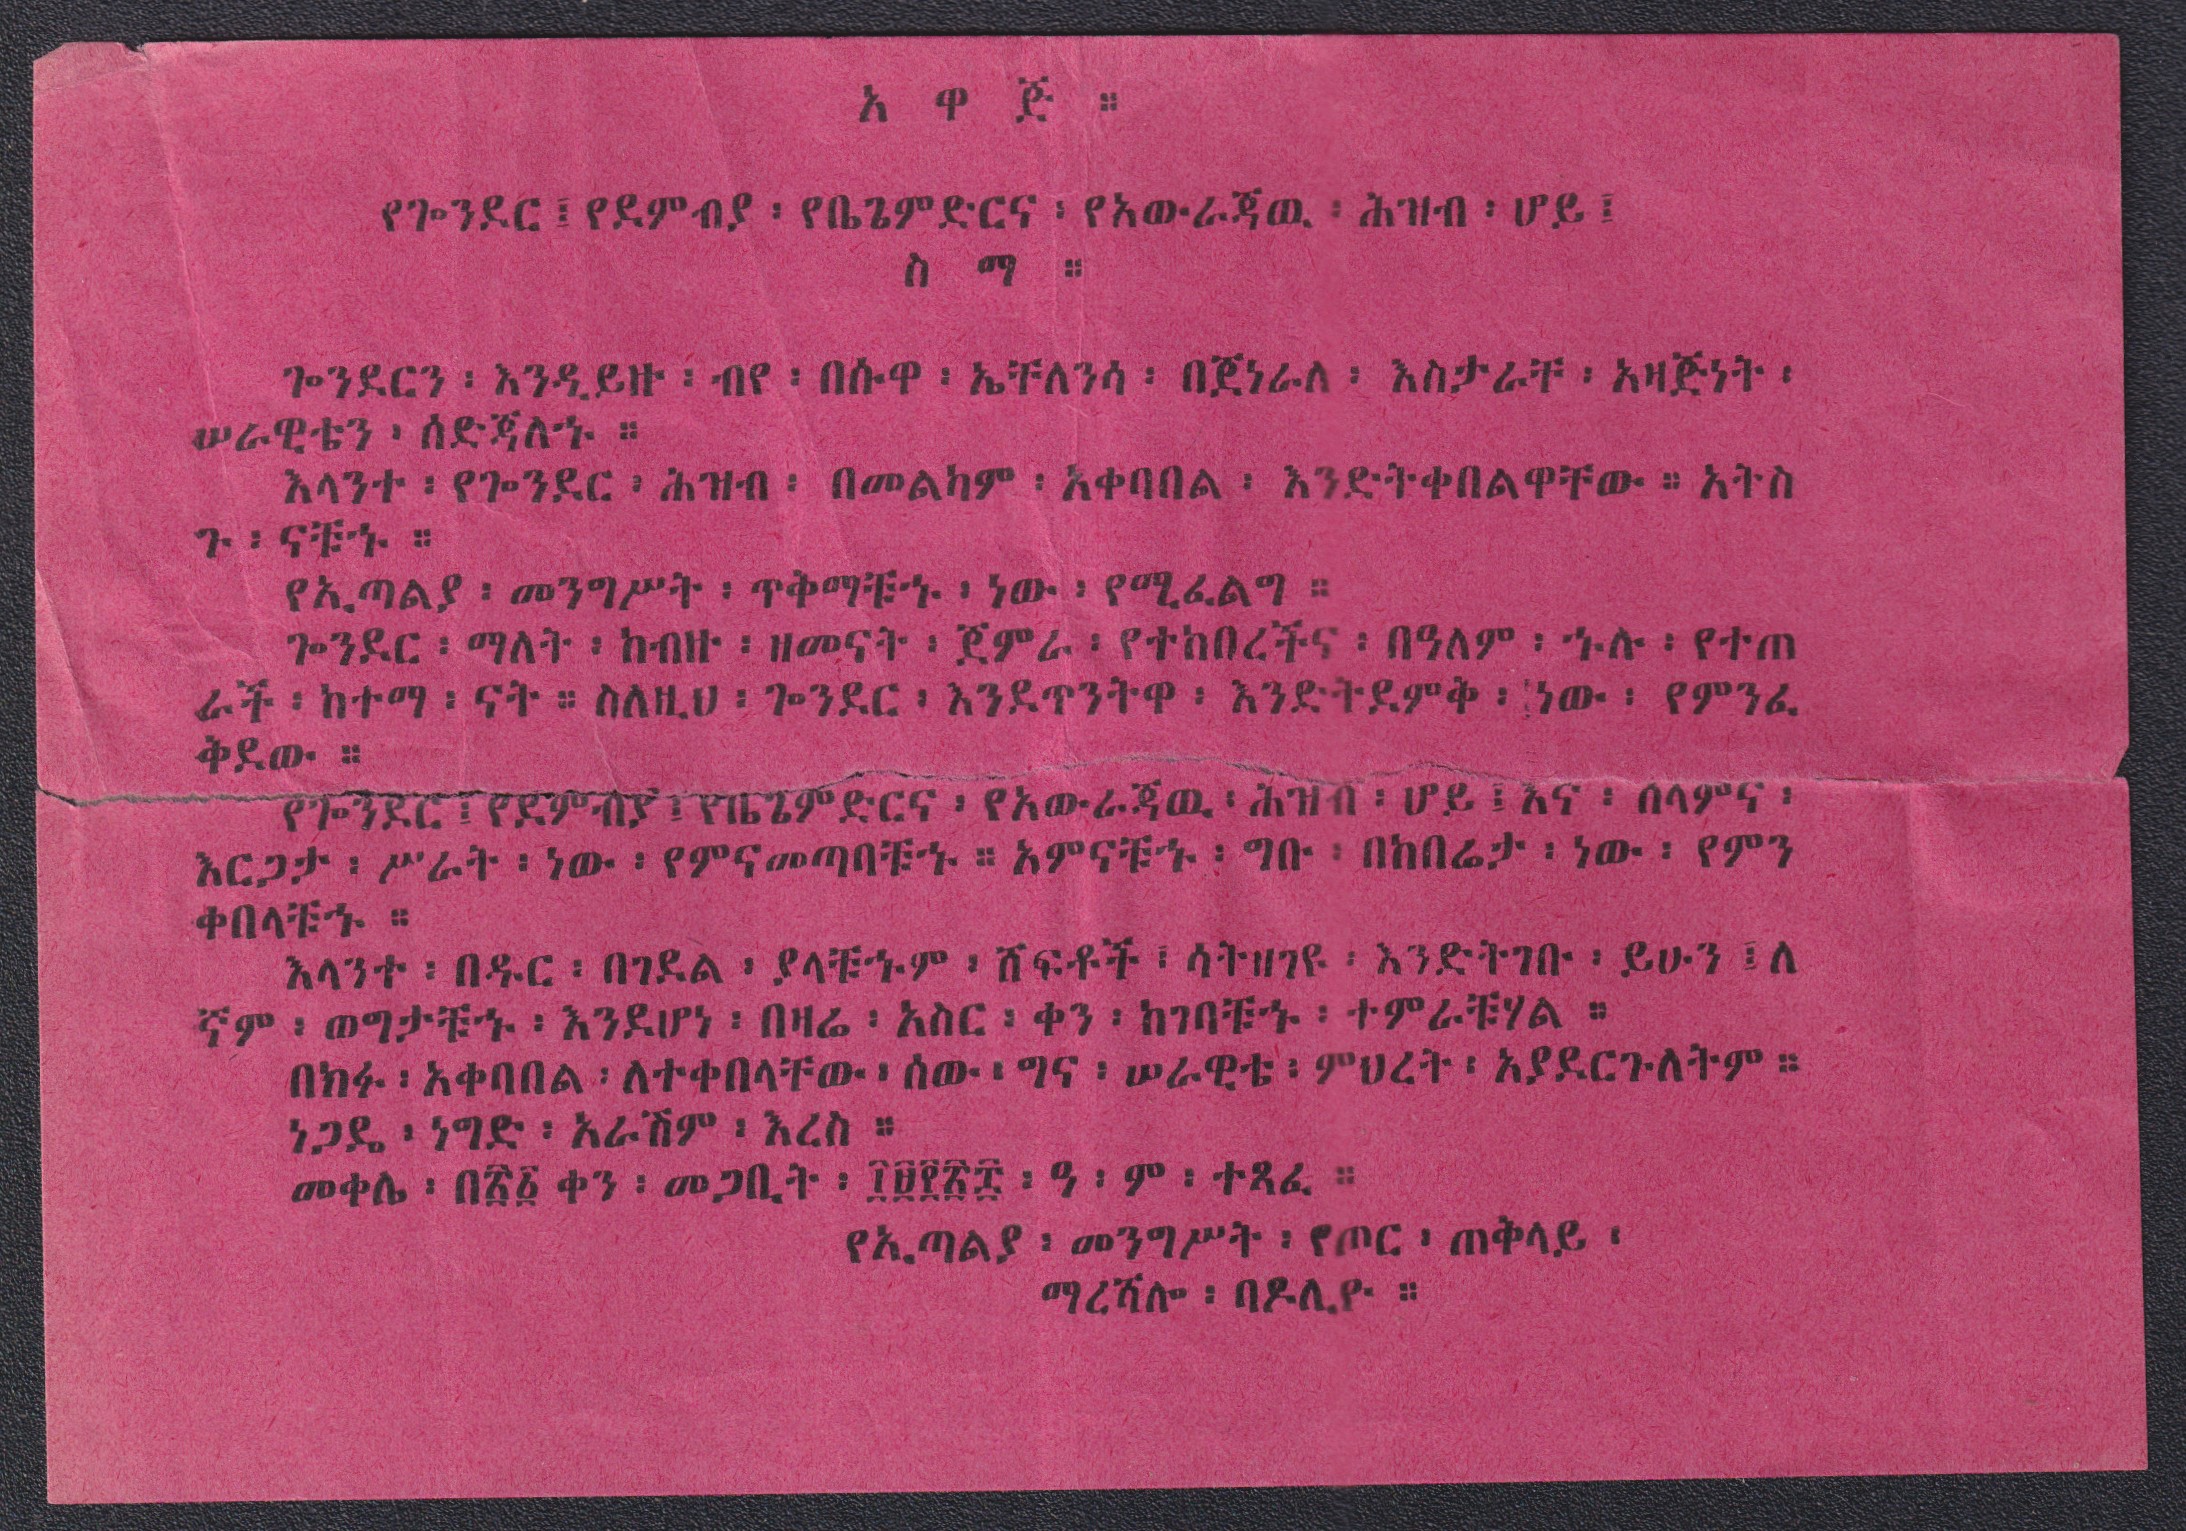 አ ዋ ጅ ።
የጐንደር ፤ የደምብያ ፡ የቤጌምድርና ፡ የአውራጃዉ ፡ ሕዝብ ፡ ሆይ ፤
ስ ማ ።
ጐንደርን ፡ እንዲይዙ ፡ ብየ ፡ በሱዋ ፡ ኤቸለንሳ ፡ በጀነራለ ፡ እስታራቸ ፡ አዛጅነት ፡
ሠራዊቴን ፡ ሰድጃለኍ ።
እላንተ ፡ የጐንደር ፡ ሕዝብ ፡ በመልካም ፡ አቀባበል ፡ እንድትቀበልዋቸው ። አትስ
ጉ ፡ ናቹኍ ።
የኢጣልያ ፡ መንግሥት ፡ ጥቅማቹኍ ፡ ነው ፡ የሚፈልግ ።
ጐንደር ፡ ማለት ፡ ከብዙ ፡ ዘመናት ፡ ጀምራ ፡ የተከበረችና ፡ በዓለም ፡ ኍሉ ፡ የተጠ
ራች ፡ ከተማ ፡ ናት ። ስለዚህ ፡ ጐንደር ፡ እንደጥንትዋ ፡ እንድትደምቅ ፡ ነው ፡ የምንፈ
ቅደው ።
የጐንደር ፤ የደምብያ ፤ የቤጌምድርና ፡ የአውራጃዉ ፡ ሕዝብ ፡ ሆይ ፤ እና ፡ ሰላምና ፡
እርጋታ ፡ ሥራት ፡ ነው ፡ የምናመጣባቹኍ ። አምናቹኍ ፡ ግቡ ፡ በከበሬታ ፡ ነው ፡ የምን
ቀበላቹኍ ።
እላንተ ፡ በዱር ፡ በገደል ፡ ያላቹኍም ፡ ሽፍቶች ፤ ሳትዘገዩ ፡ እንድትገቡ ፡ ይሁን ፤ ለ
ኛም ፡ ወግታቹኍ ፡ እንደሆነ ፡ በዛሬ ፡ አስር ፡ ቀን ፡ ከገባቹኍ ፡ ተምራቹሃል ።
በክፉ ፡ አቀባበል ፡ ለተቀበላቸው ፡ ሰው ፡ ግና ፡ ሠራዊቴ ፡ ምህረት ፡ አያደርጉለትም ።
ነጋዴ ፡ ነግድ ፡ አራሽም ፡ እረስ ።
መቀሌ ፡ በ፳፩ ቀን ፡ መጋቢት ፡ ፲፱፻፳፰ ፡ ዓ ፡ ም ፡ ተጻፈ ።
የኢጣልያ ፡ መንግሥት ፡ የጦር ፡ ጠቅላይ ፡
ማረሻሎ ፡ ባዶሊዮ ።